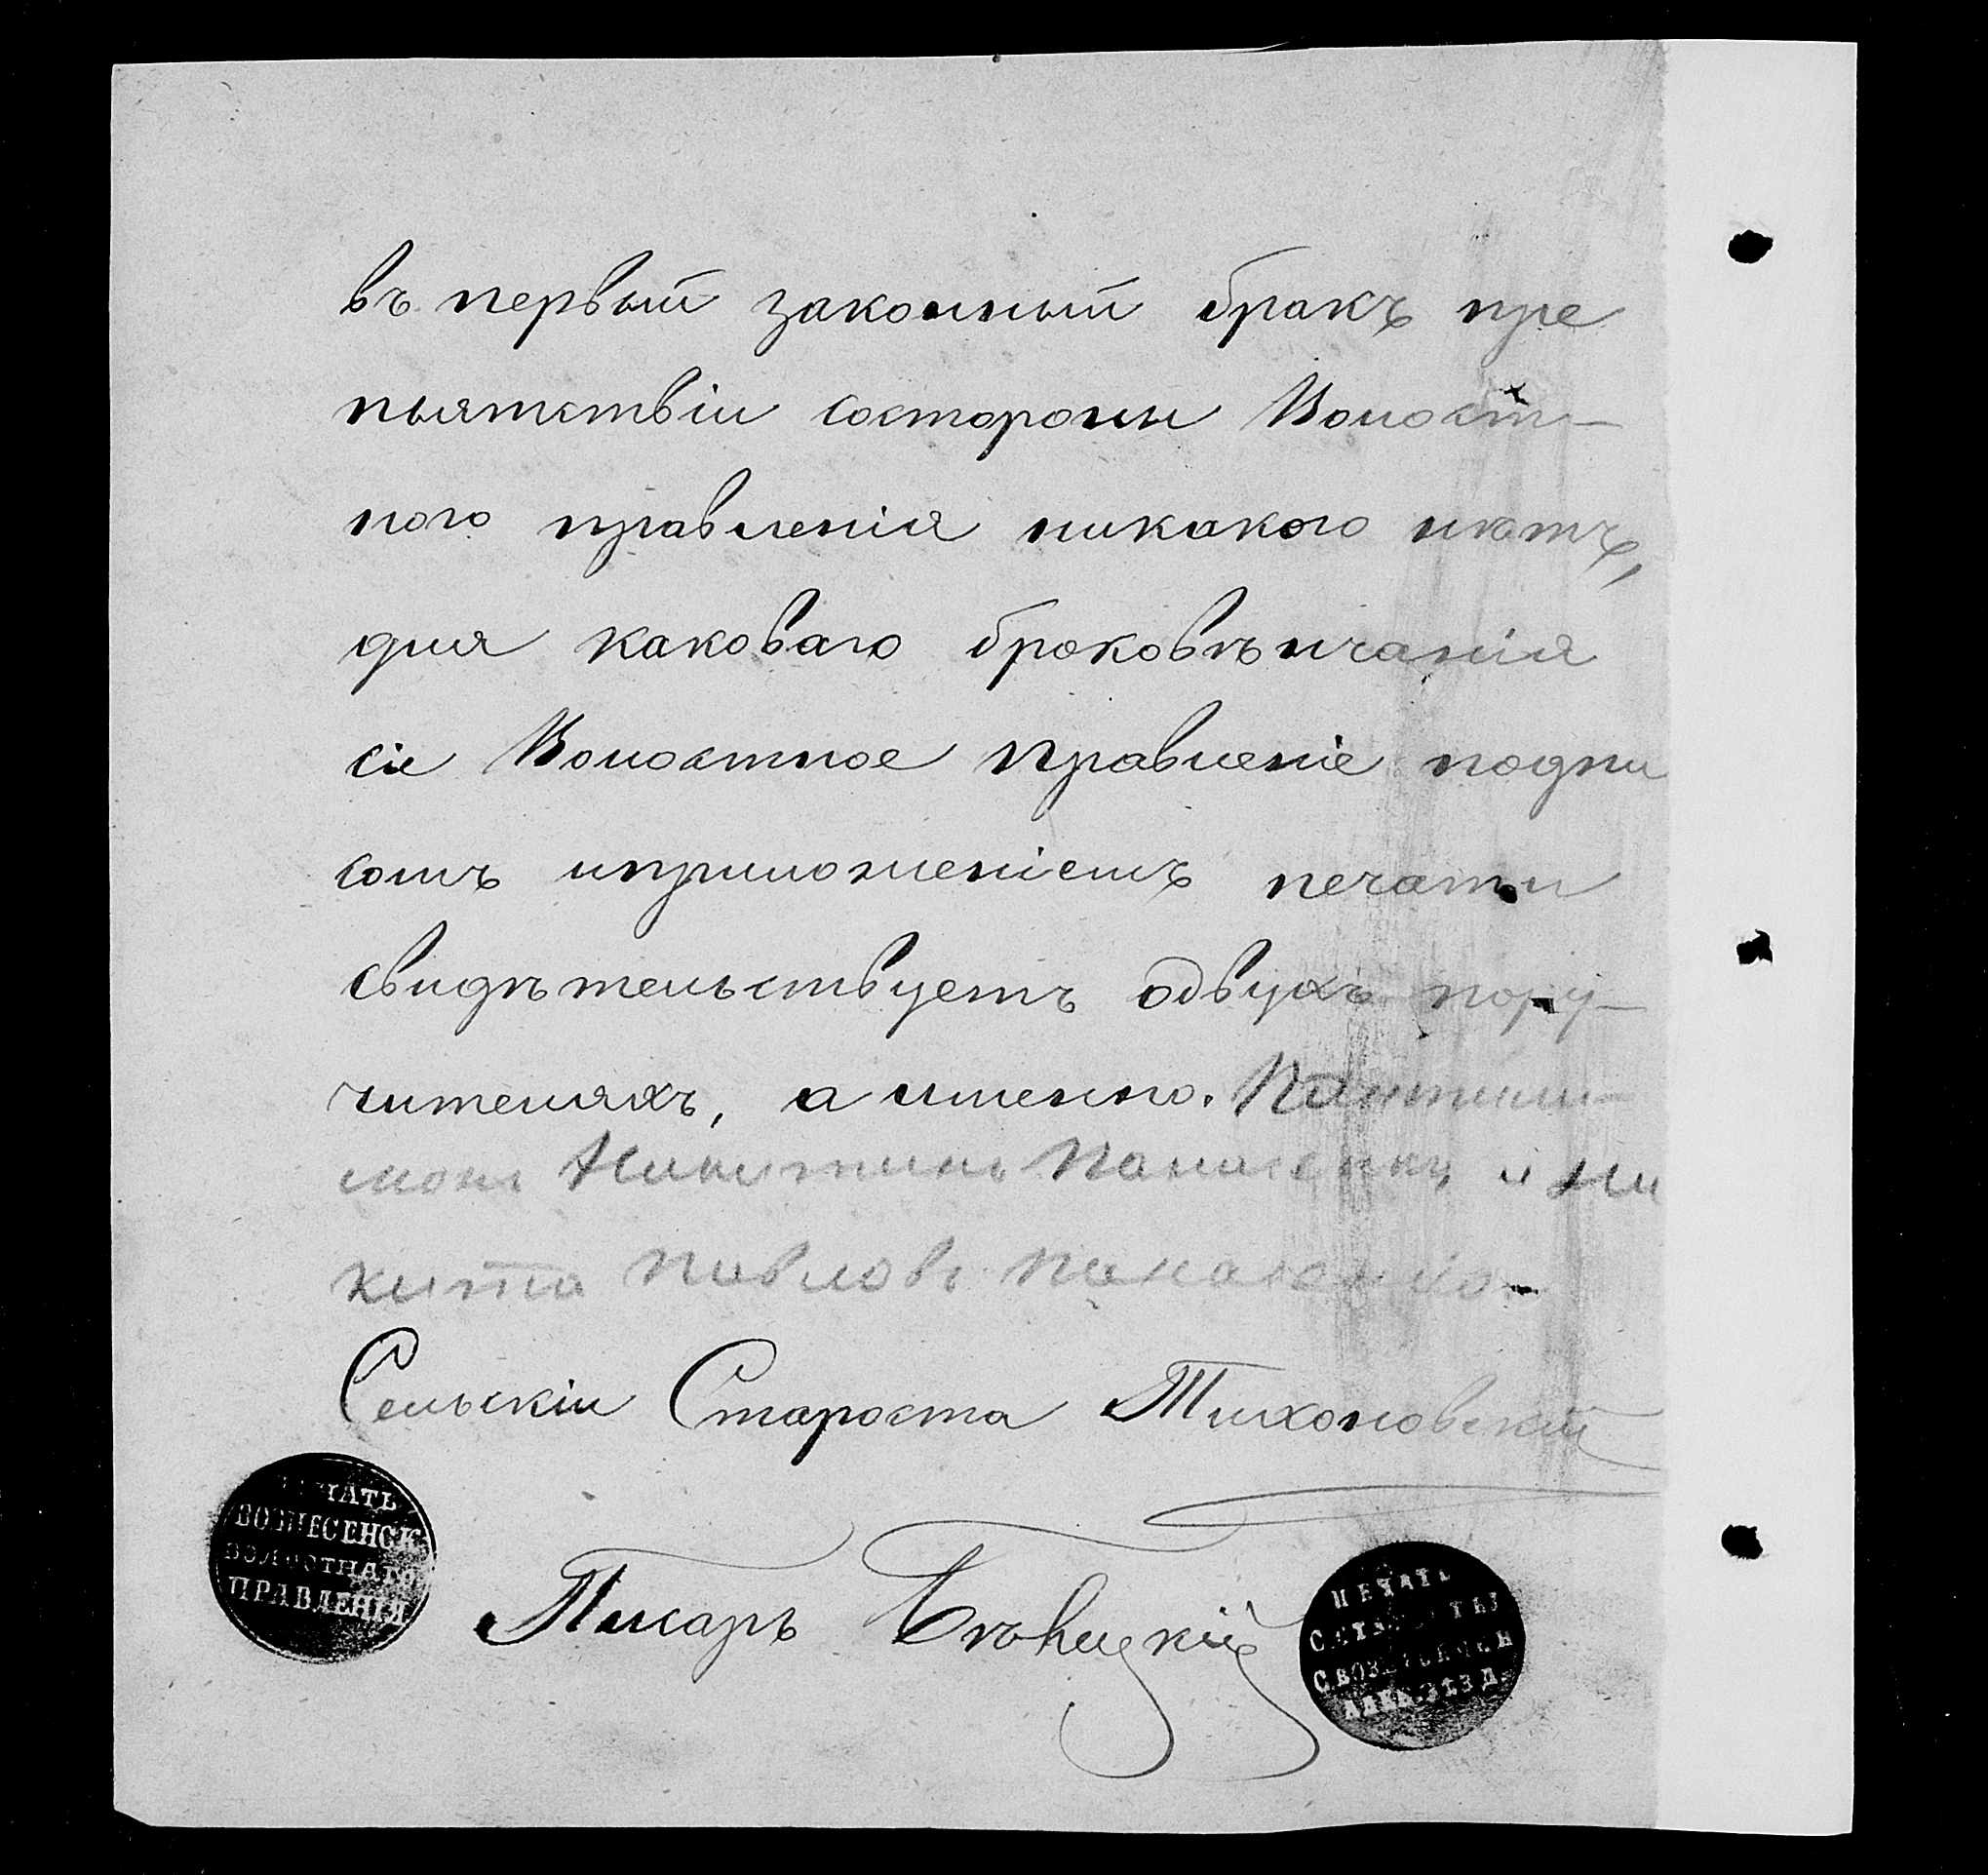 въ первый законный бракъ пре
пьятствіи состороны Волост-
ного правленія никакого нѣтъ,
для каковаго браковѣнчанія
сіе Волостное правленіе подпи
сомъ иприложеніемъ печати
свидѣтельствуетъ одвухъ пору-
чителяхъ, а именно. Пантили-
монъ Никитинъ Панасенко и Ни
кита Павловъ Панасенко
Сельскіи Староста Тихоновскій
Писарь
ПЕЧАТЬ
ВОЗНЕСЕНСК
ВОЛОСТНАГО
ПРАВЛЕНІЯ
ПЕЧАТЬ